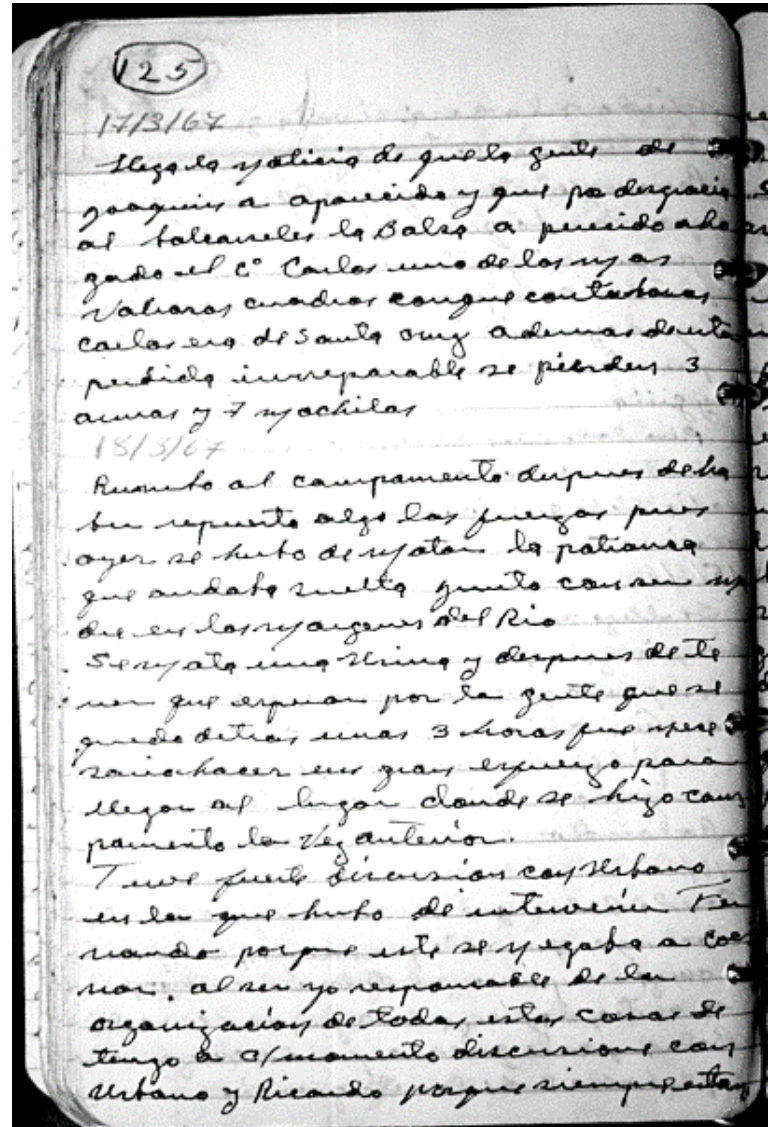 125
17/3/67
Llega la noticia de que la gente de
Joaquin a aparecido y que por desgracia
al balcarseles la Balsa a perecido aho
gado el Cº Carlos uno de los mas
Valiosos cuadros conque contabamos
Carlos era de Santa Cruz ademas de esta
perdida irreparable se pierden 3
armas y 7 mochilas
18/3/67
Rumbo al campamento despues de ha
ber repuesto algo las fuerzas pues
ayer se hubo de matar la potranca
que andaba suelta junto con su ma
dre en los margenes del Rio
Se mata una Urina y despues de te
ner que esperar por la gente que se
quedo detras unas 3 horas fue nece
sario hacer un gran esfuerzo para
llegar al lugar donde se hizo cam
pamento la Vez anterior.
Tuve fuerte discusion con Urbano
en la que hubo de intervenir Fer
nando porque este se negaba a coci
nar. al ser yo responsable de la
organización de todas estas cosas
tengo a c/momento discusiones con
Urbano y Ricardo porque siempre estan